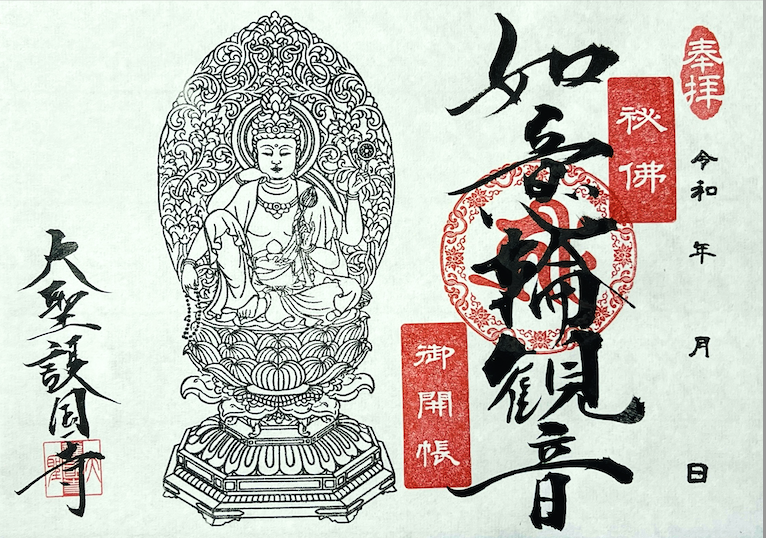 奉拝
令和 年 月 日
祕佛
如意輪観音
御開帳
大聖護国寺